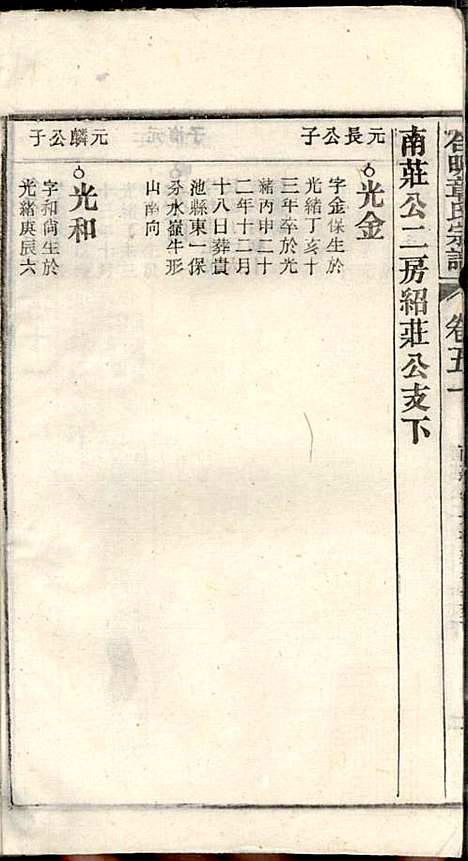 章氏宗譜
卷五十
南莊公二房紹莊公支下
元長公子
光金
字金保生於
光緒丁亥十
三年卒於光
緒丙申二十
二年十二月
十八日葬貴
池縣東一保
分水嶺牛形
山向
元麟公子
光和
字和尚生於
光緒庚辰六